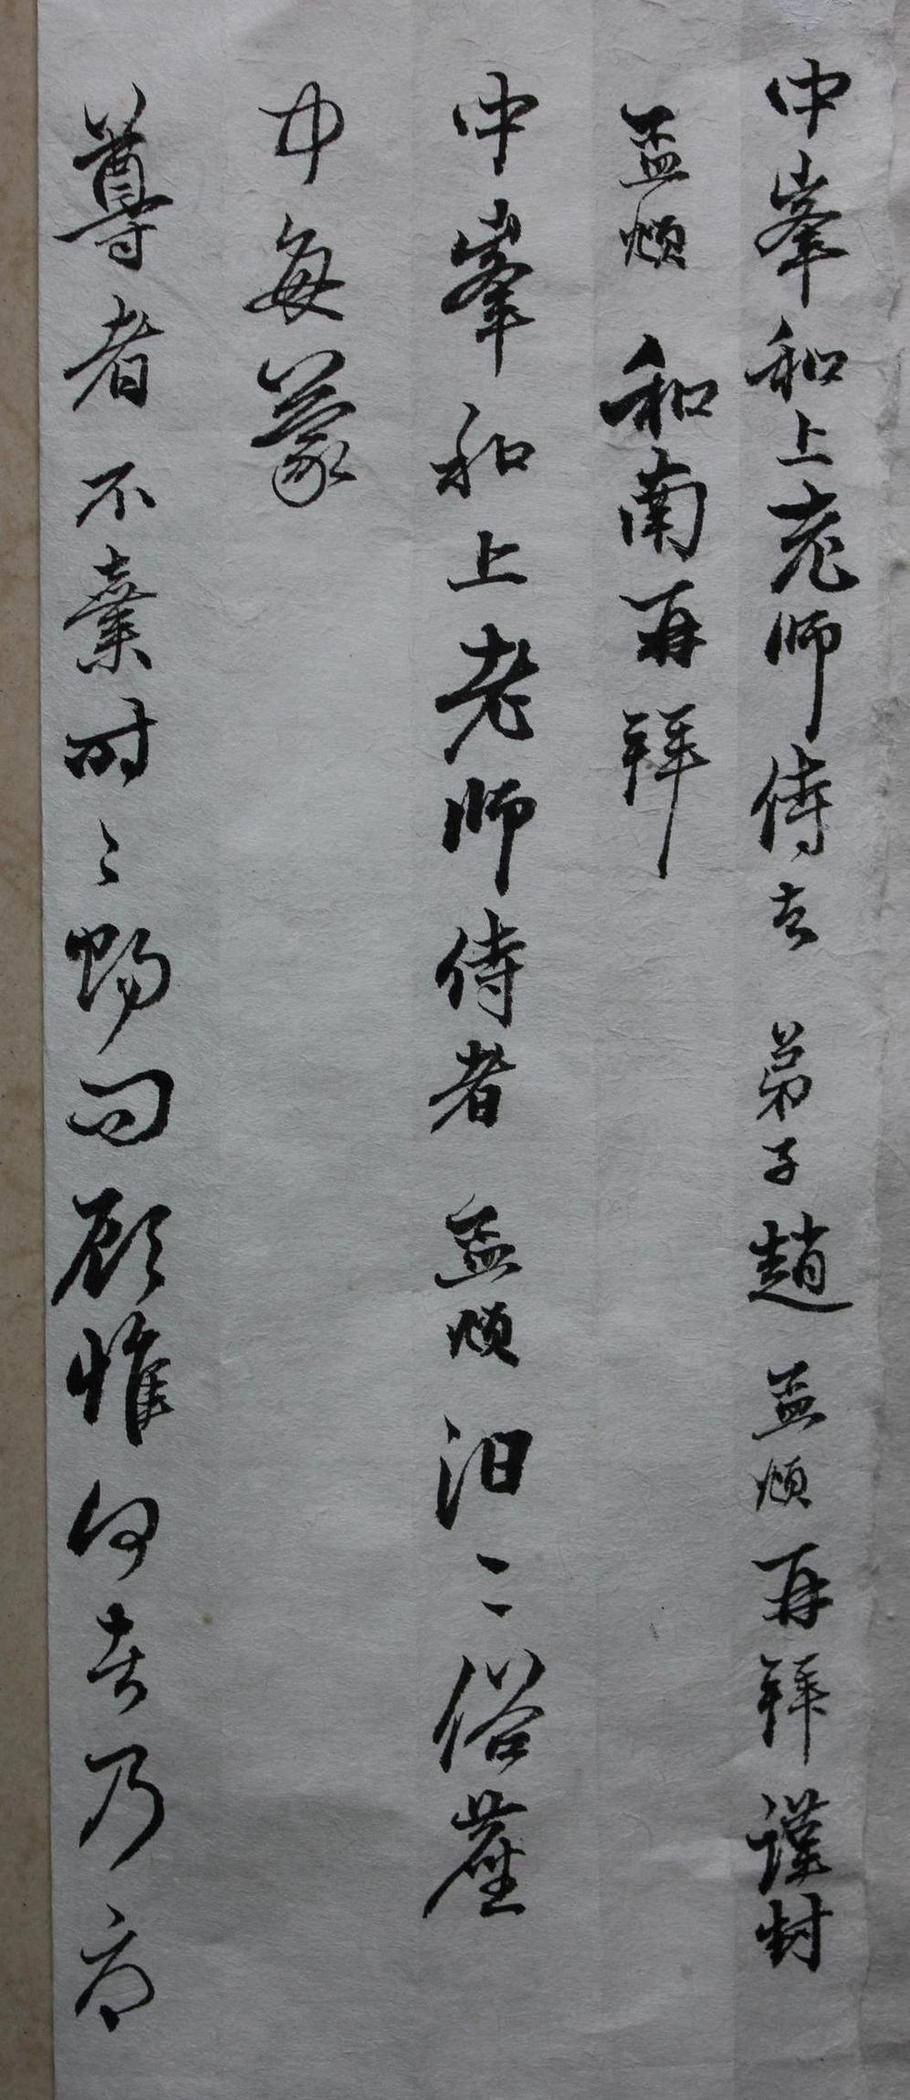 中峯和上老師侍者 弟子趙孟頫再拜謹封
孟頫和南再拜
中峯和上老師侍者 孟頫汩〻俗塵
中每蒙
尊者不棄时〻賜问顾惟何者乃尔